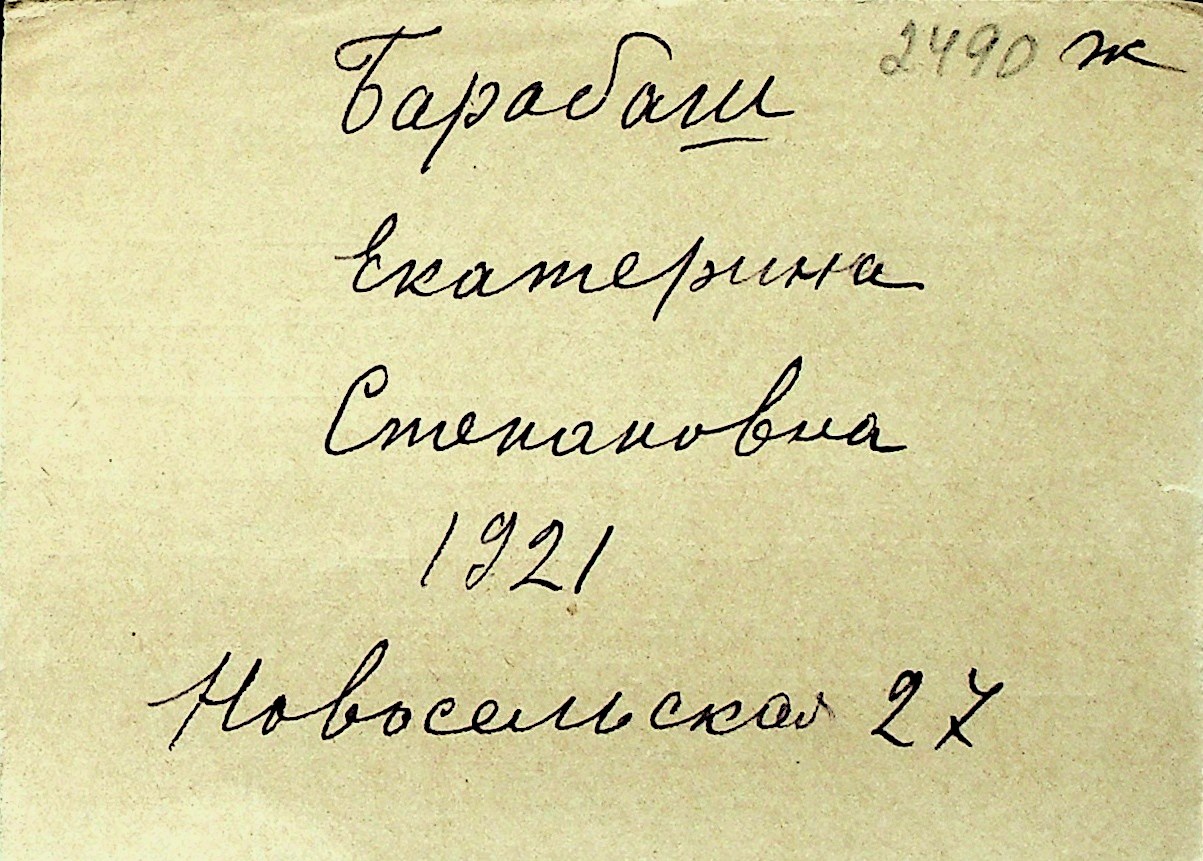 2490 ж
Барабаш
Екатерина
Степановна
1921
Новосельская 27